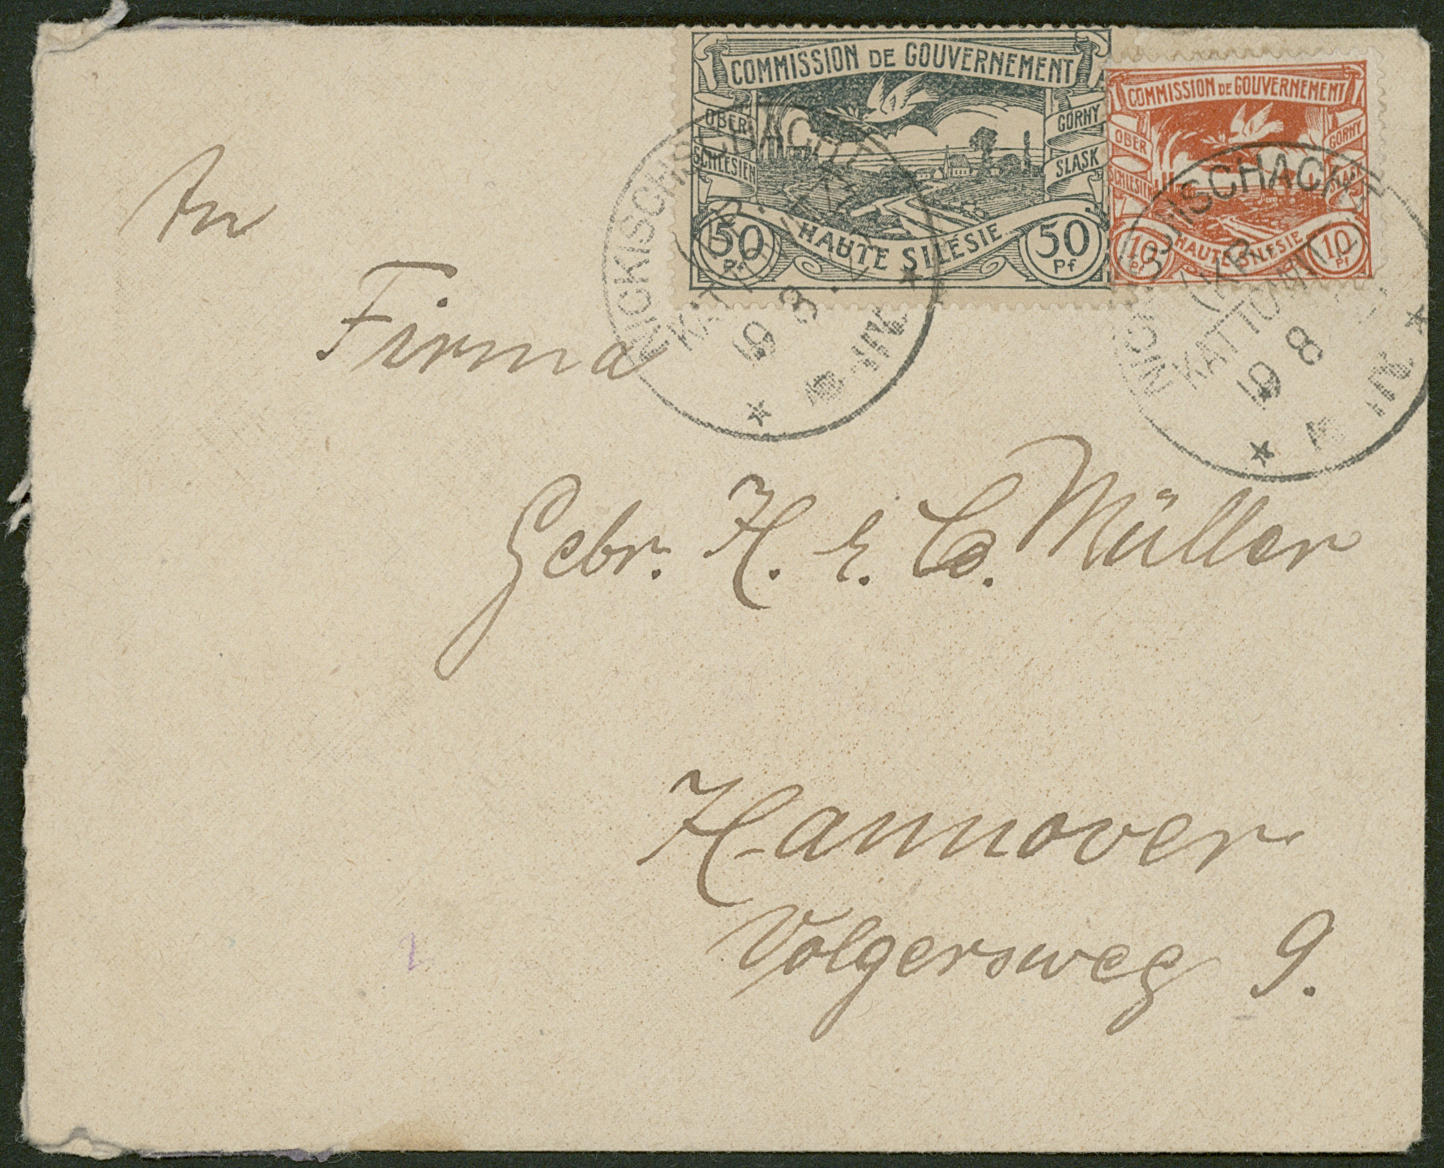 COMMISSION DE GOUVERNEMENT
OBER
SCHLESIEN
GORNY
SLASK
HAUTE SILESIE
50
Pf
50
Pf
COMMISSION DE GOUVERNEMENT
OBER
SCHLESIEN
GORNY
SLASK
HAUTE SILESIE
10
Pf
10
Pf
NICKISCHSCHACHT
(KR.
KATTOWITZ)
19 8
NICKISCHSCHACHT
(KR.
KATTOWITZ)
19 8
An
Firma
Gebr. H. E. Co. Müller
Hannover
Volgersweg 9.